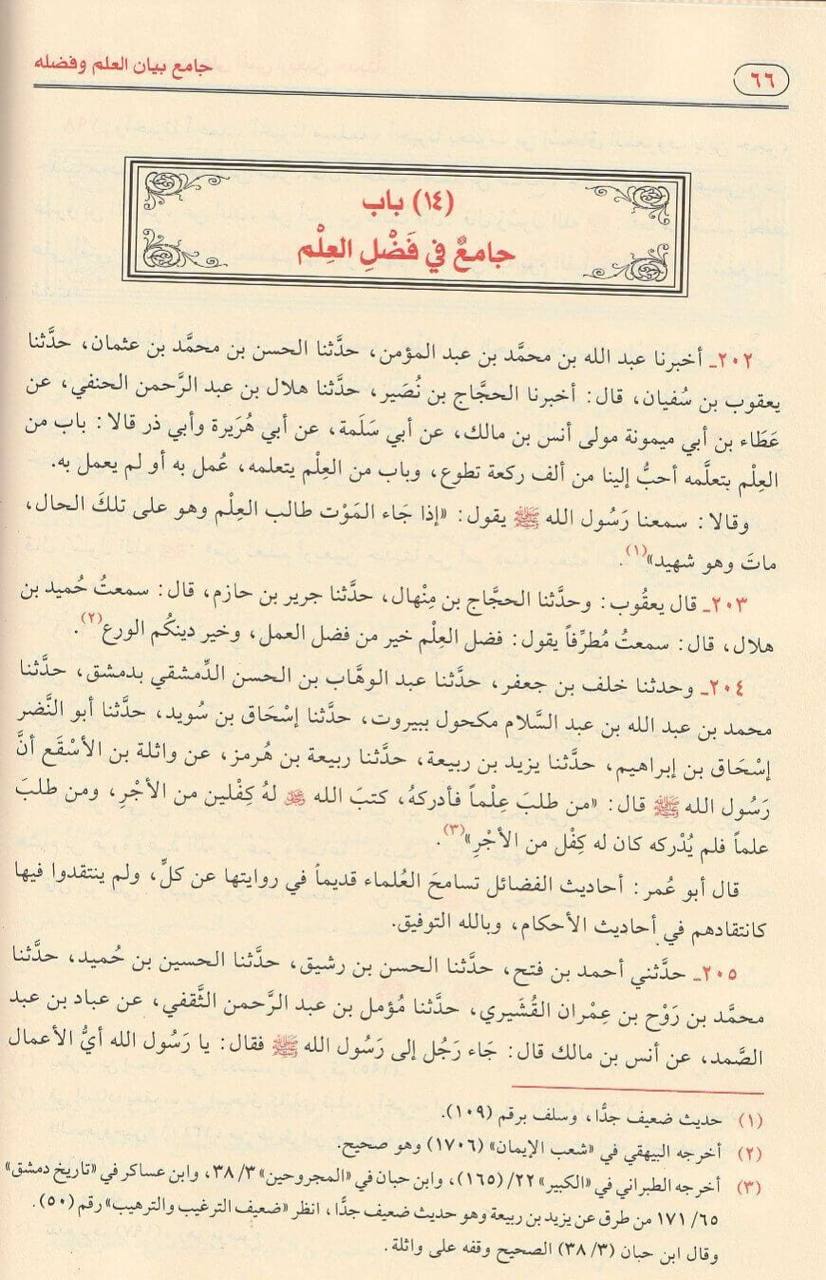 ٦٦
جامع بيان العلم وفضله
(١٤) باب
جامعٌ في فَضْلِ العِلْم
٢٠٢ـ أخبرنا عبد الله بن محمَّد بن عبد المؤمن، حدَّثنا الحسن بن محمَّد بن عثمان، حدَّثنا
يعقوب بن سُفيان، قال: أخبرنا الحجَّاج بن نُصَير، حدَّثنا هلال بن عبد الرَّحمن الحنفي، عن
عَطَاء بن أبي ميمونة مولى أنس بن مالك، عن أبي سَلَمة، عن أبي هُرَيرة وأبي ذر قالا: باب من
العِلْم بتعلَّمه أحبُّ إلينا من ألف ركعة تطوع، وباب من العِلْم يتعلمه، عُمل به أو لم يعمل به.
وقالا: سمعنا رَسُول الله ﷺ يقول: «إذا جَاء المَوْت طالب العِلْم وهو على تلكَ الحال،
ماتَ وهو شهيد»(١).
٢٠٣ـ قال يعقُوب: وحدَّثنا الحجَّاج بن مِنْهال، حدَّثنا جرير بن حازم، قال: سمعتُ حُميد بن
هلال، قال: سمعتُ مُطرِّفاً يقول: فضل العِلْم خير من فضل العمل، وخير دينكُم الورع(٢).
٢٠٤ـ وحدثنا خلف بن جعفر، حدَّثنا عبد الوهَّاب بن الحسن الدِّمشقي بدمشق، حدَّثنا
محمد بن عبد الله بن عبد السَّلام مكحول ببيروت، حدَّثنا إسْحَاق بن سُويد، حدَّثنا أبو النَّضر
إسْحَاق بن إبراهيم، حدَّثنا يزيد بن ربيعة، حدَّثنا ربيعة بن هُرمز، عن واثلة بن الأسْقَع أنَّ
رَسُول الله ﷺ قال: «من طلبَ عِلْماً فأدركهُ، كتبَ الله ﷻ لهُ كِفْلين من الأجْرِ، ومن طلبَ
علماً فلم يُدْركه كان له كِفْل من الأجْرِ»(٣).
قال أبو عُمر: أحاديث الفضائل تسامحَ العُلماء قديماً في روايتها عن كلٍّ، ولم ينتقدوا فيها
كانتقادهم في أحاديث الأحكام، وبالله التوفيق.
٢٠٥ـ حدَّثني أحمد بن فتح، حدَّثنا الحسن بن رشيق، حدَّثنا الحسين بن حُميد، حدَّثنا
محمَّد بن رَوْح بن عِمْران القُشَيري، حدَّثنا مُؤمل بن عبد الرَّحمن الثَّقفي، عن عباد بن عبد
الصَّمد، عن أنس بن مالك قال: جَاء رَجُل إلى رَسُول الله ﷺ فقال: يا رَسُول الله أيُّ الأعمال
(١) حديث ضعيف جدًّا، وسلف برقم (١٠٩).
(٢) أخرجه البيهقي في «شعب الإيمان» (١٧٠٦) وهو صحيح.
(٣) أخرجه الطبراني في «الكبير» ٢٢/ (١٦٥)، وابن حبان في «المجروحين» ٣/ ٣٨، وابن عساكر في «تاريخ دمشق»
٦٥/ ١٧١ من طرق عن يزيد بن ربيعة وهو حديث ضعيف جدًّا، انظر «ضعيف الترغيب والترهيب» رقم (٥٠).
وقال ابن حبان (٣/ ٣٨) الصحيح وقفه على واثلة.